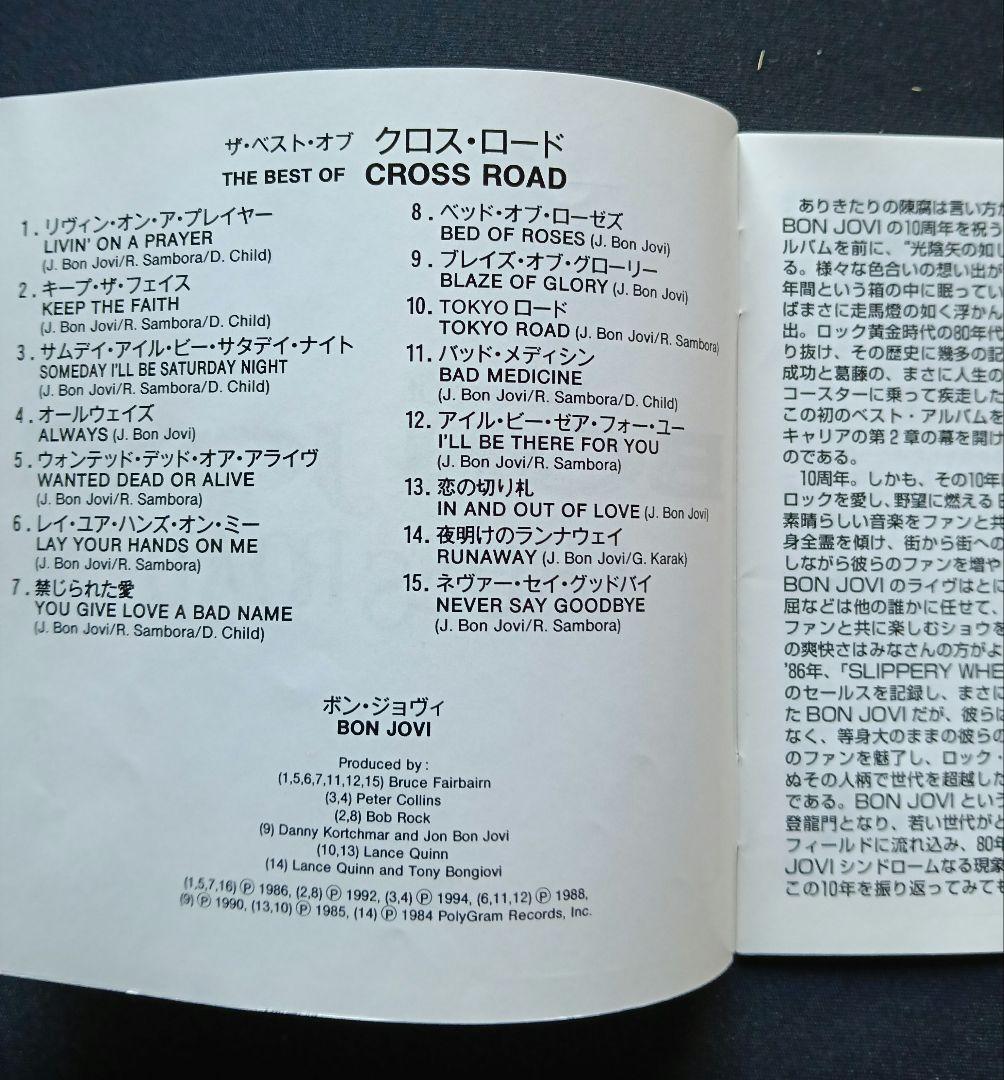 ザ・ベスト・オブ クロス・ロード
THE BEST OF CROSS ROAD
1. リヴィン・オン・ア・プレイヤー
LIVIN' ON A PRAYER
(J. Bon Jovi/R. Sambora/D. Child)
2. キープ・ザ・フェイス
KEEP THE FAITH
(J. Bon Jovi/R. Sambora/D. Child)
3. サムデイ・アイル・ビー・サタデイ・ナイト
SOMEDAY I'LL BE SATURDAY NIGHT
(J. Bon Jovi/R. Sambora/D. Child)
4. オールウェイズ
ALWAYS (J. Bon Jovi)
5. ウォンテッド・デッド・オア・アライヴ
WANTED DEAD OR ALIVE
(J. Bon Jovi/R. Sambora)
6. レイ・ユア・ハンズ・オン・ミー
LAY YOUR HANDS ON ME
(J. Bon Jovi/R. Sambora)
7. 禁じられた愛
YOU GIVE LOVE A BAD NAME
(J. Bon Jovi/R. Sambora/D. Child)
8. ベッド・オブ・ローゼズ
BED OF ROSES (J. Bon Jovi)
9. ブレイズ・オブ・グローリー
BLAZE OF GLORY (J. Bon Jovi)
10. TOKYO ロード
TOKYO ROAD (J. Bon Jovi/R. Sambora)
11. バッド・メディシン
BAD MEDICINE
(J. Bon Jovi/R. Sambora/D. Child)
12. アイル・ビー・ゼア・フォー・ユー
I'LL BE THERE FOR YOU
(J. Bon Jovi/R. Sambora)
13. 恋の切り札
IN AND OUT OF LOVE (J. Bon Jovi)
14. 夜明けのランナウェイ
RUNAWAY (J. Bon Jovi/G. Karak)
15. ネヴァー・セイ・グッドバイ
NEVER SAY GOODBYE
(J. Bon Jovi/R. Sambora)
ボン・ジョヴィ
BON JOVI
Produced by :
(1,5,6,7,11,12,15) Bruce Fairbairn
(3,4) Peter Collins
(2,8) Bob Rock
(9) Danny Kortchmar and Jon Bon Jovi
(10,13) Lance Quinn
(14) Lance Quinn and Tony Bongiovi
(1,5,7,16) Ⓟ 1986, (2,8) Ⓟ 1992, (3,4) Ⓟ 1994, (6,11,12) Ⓟ 1988,
(9) Ⓟ 1990, (13,10) Ⓟ 1985, (14) Ⓟ 1984 PolyGram Records, Inc.
ありきたりの陳腐は言い方か
BON JOVIの10周年を祝う
ルバムを前に、“光陰矢の如し
る。様々な色合いの想い出が
年間という箱の中に眠ってい
ばまさに走馬燈の如く浮かん
出。ロック黄金時代の80年代
り抜け、その歴史に幾多の記
成功と葛藤の、まさに人生の
コースターに乗って疾走した
この初のベスト・アルバムを
キャリアの第2章の幕を開け
のである。
10周年。しかも、その10年
ロックを愛し、野望に燃える
素晴らしい音楽をファンと共
身全霊を傾け、街から街への
しながら彼らのファンを増や
BON JOVIのライヴはとに
屈などは他の誰かに任せて、
ファンと共に楽しむショウを
の爽快さはみなさんの方がよ
'86年、「SLIPPERY WHE
のセールスを記録し、まさに
たBON JOVIだが、彼らは
なく、等身大のままの彼らの
のファンを魅了し、ロック・
ぬその人柄で世代を超越した
である。BON JOVIという
登龍門となり、若い世代がと
フィールドに流れ込み、80年
JOVIシンドロームなる現象
この10年を振り返ってみても